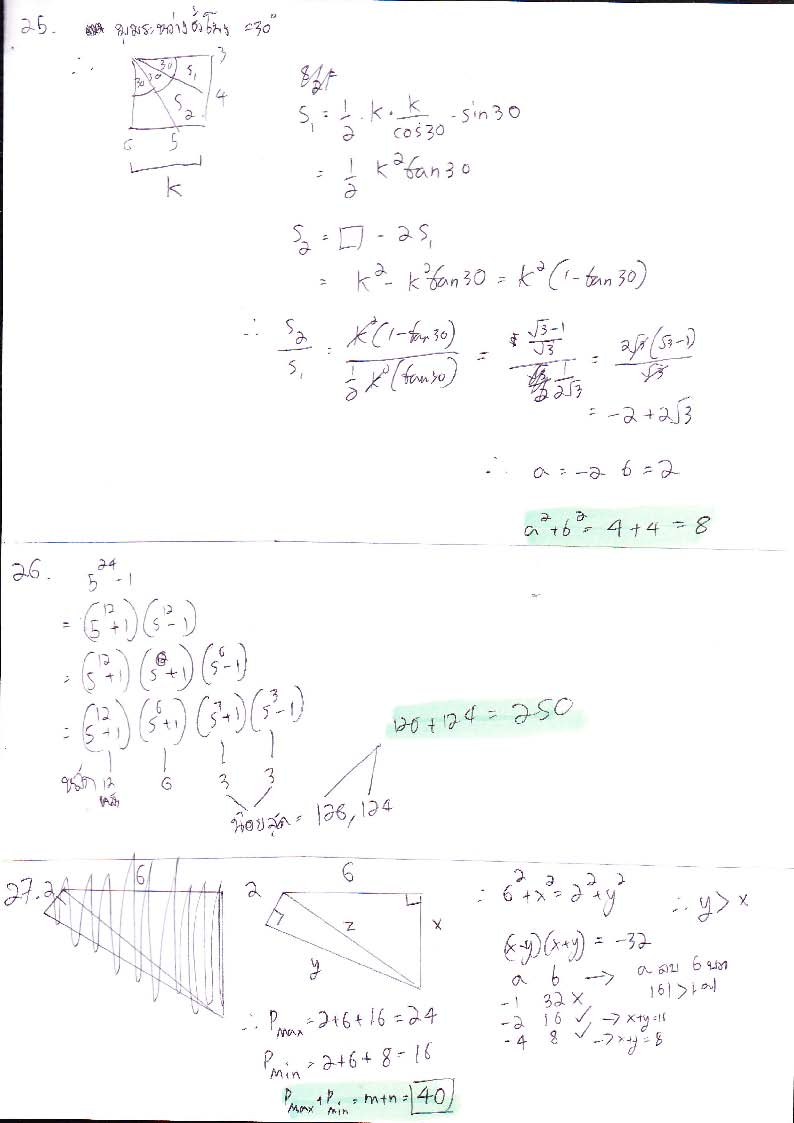 25. มุมระหว่างชั่วโมง = 30°
∴
30 30 30 S₁ S₂ 3 4 5 6 k
S₁ = 1/2 · k · k/cos30 · sin30
= 1/2 k² tan30
S₂ = □ - 2S₁
= k² - k² tan30 = k²(1 - tan30)
∴ S₂/S₁ = k²(1 - tan30) / 1/2 k²(tan30) = (√3-1)/√3 / 1/2√3 = 2√3(√3-1)/√3
= -2 + 2√3
∴ a = -2 b = 2
a² + b² = 4 + 4 = 8
26. 5²⁴ - 1
= (5¹² + 1)(5¹² - 1)
= (5¹² + 1)(5⁶ + 1)(5⁶ - 1)
= (5¹² + 1)(5⁶ + 1)(5³ + 1)(5³ - 1)
12 6 3 3
หลัก
น้อยสุด = 126, 124
126 + 124 = 250
27. 2 6
2 6 x y z
∴ 6² + x² = 2² + y² ∴ y > x
(x-y)(x+y) = -32
a b → a ลบ b บวก
|b| > |a|
-1 32 ×
-2 16 ✓ → x+y = 16
-4 8 ✓ → x+y = 8
∴ Pmax = 2 + 6 + 16 = 24
Pmin = 2 + 6 + 8 = 16
Pmax + Pmin = m + n = 40